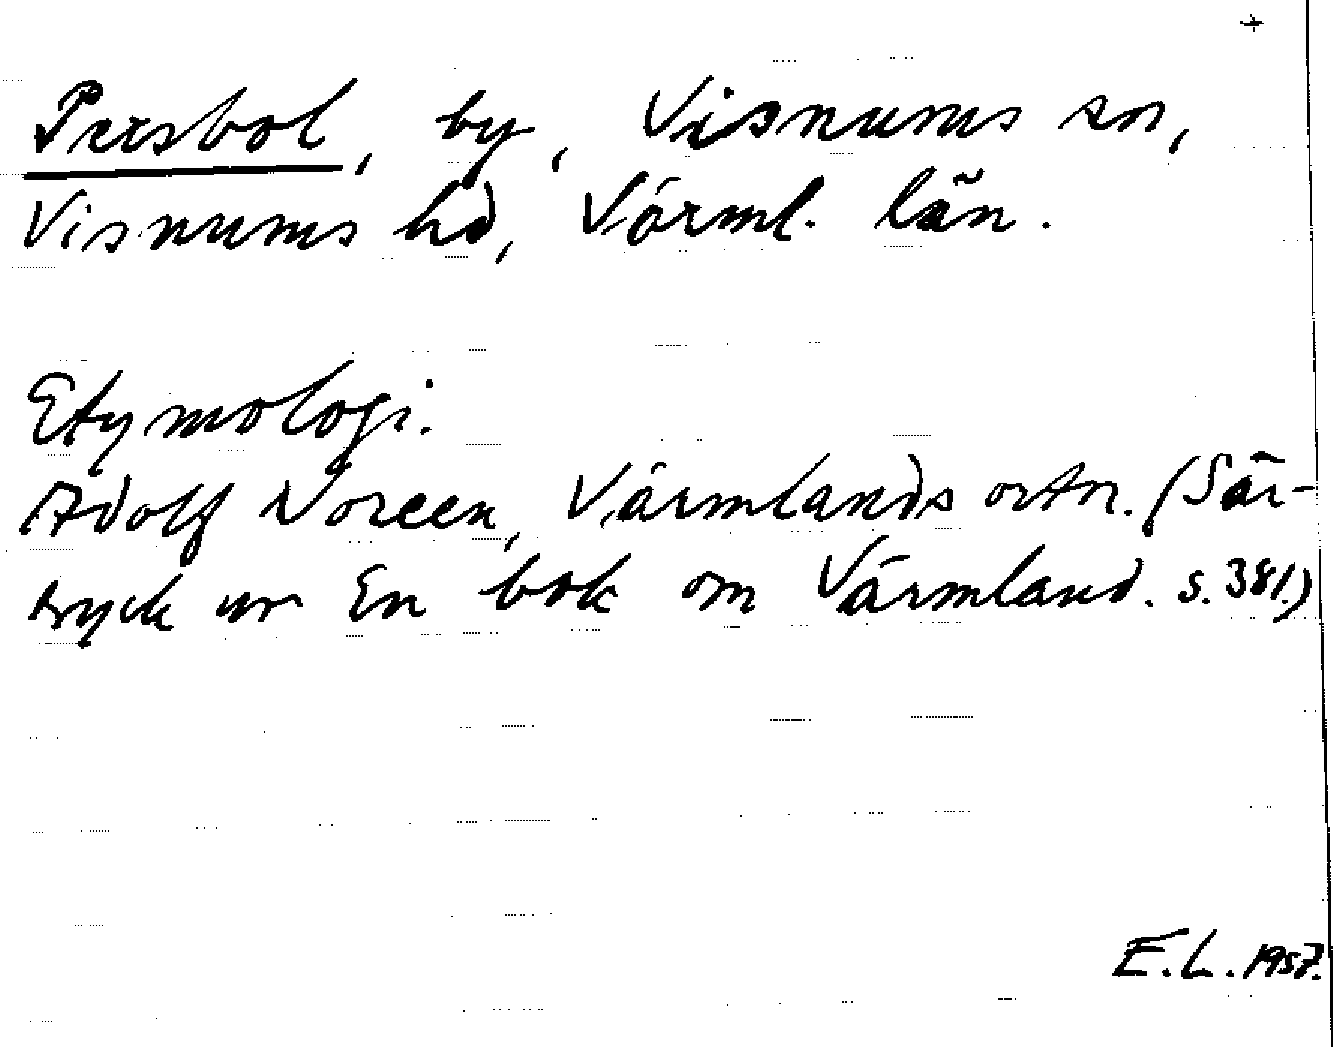 +
Persbol, by, Visnums sn,
Visnums hd, Värml. län.
Etymologi.
Adolf Noreen, Värmlands ortn. (Sär-
tryck ur En bok om Värmland. s. 381.)
E.L. 1957.